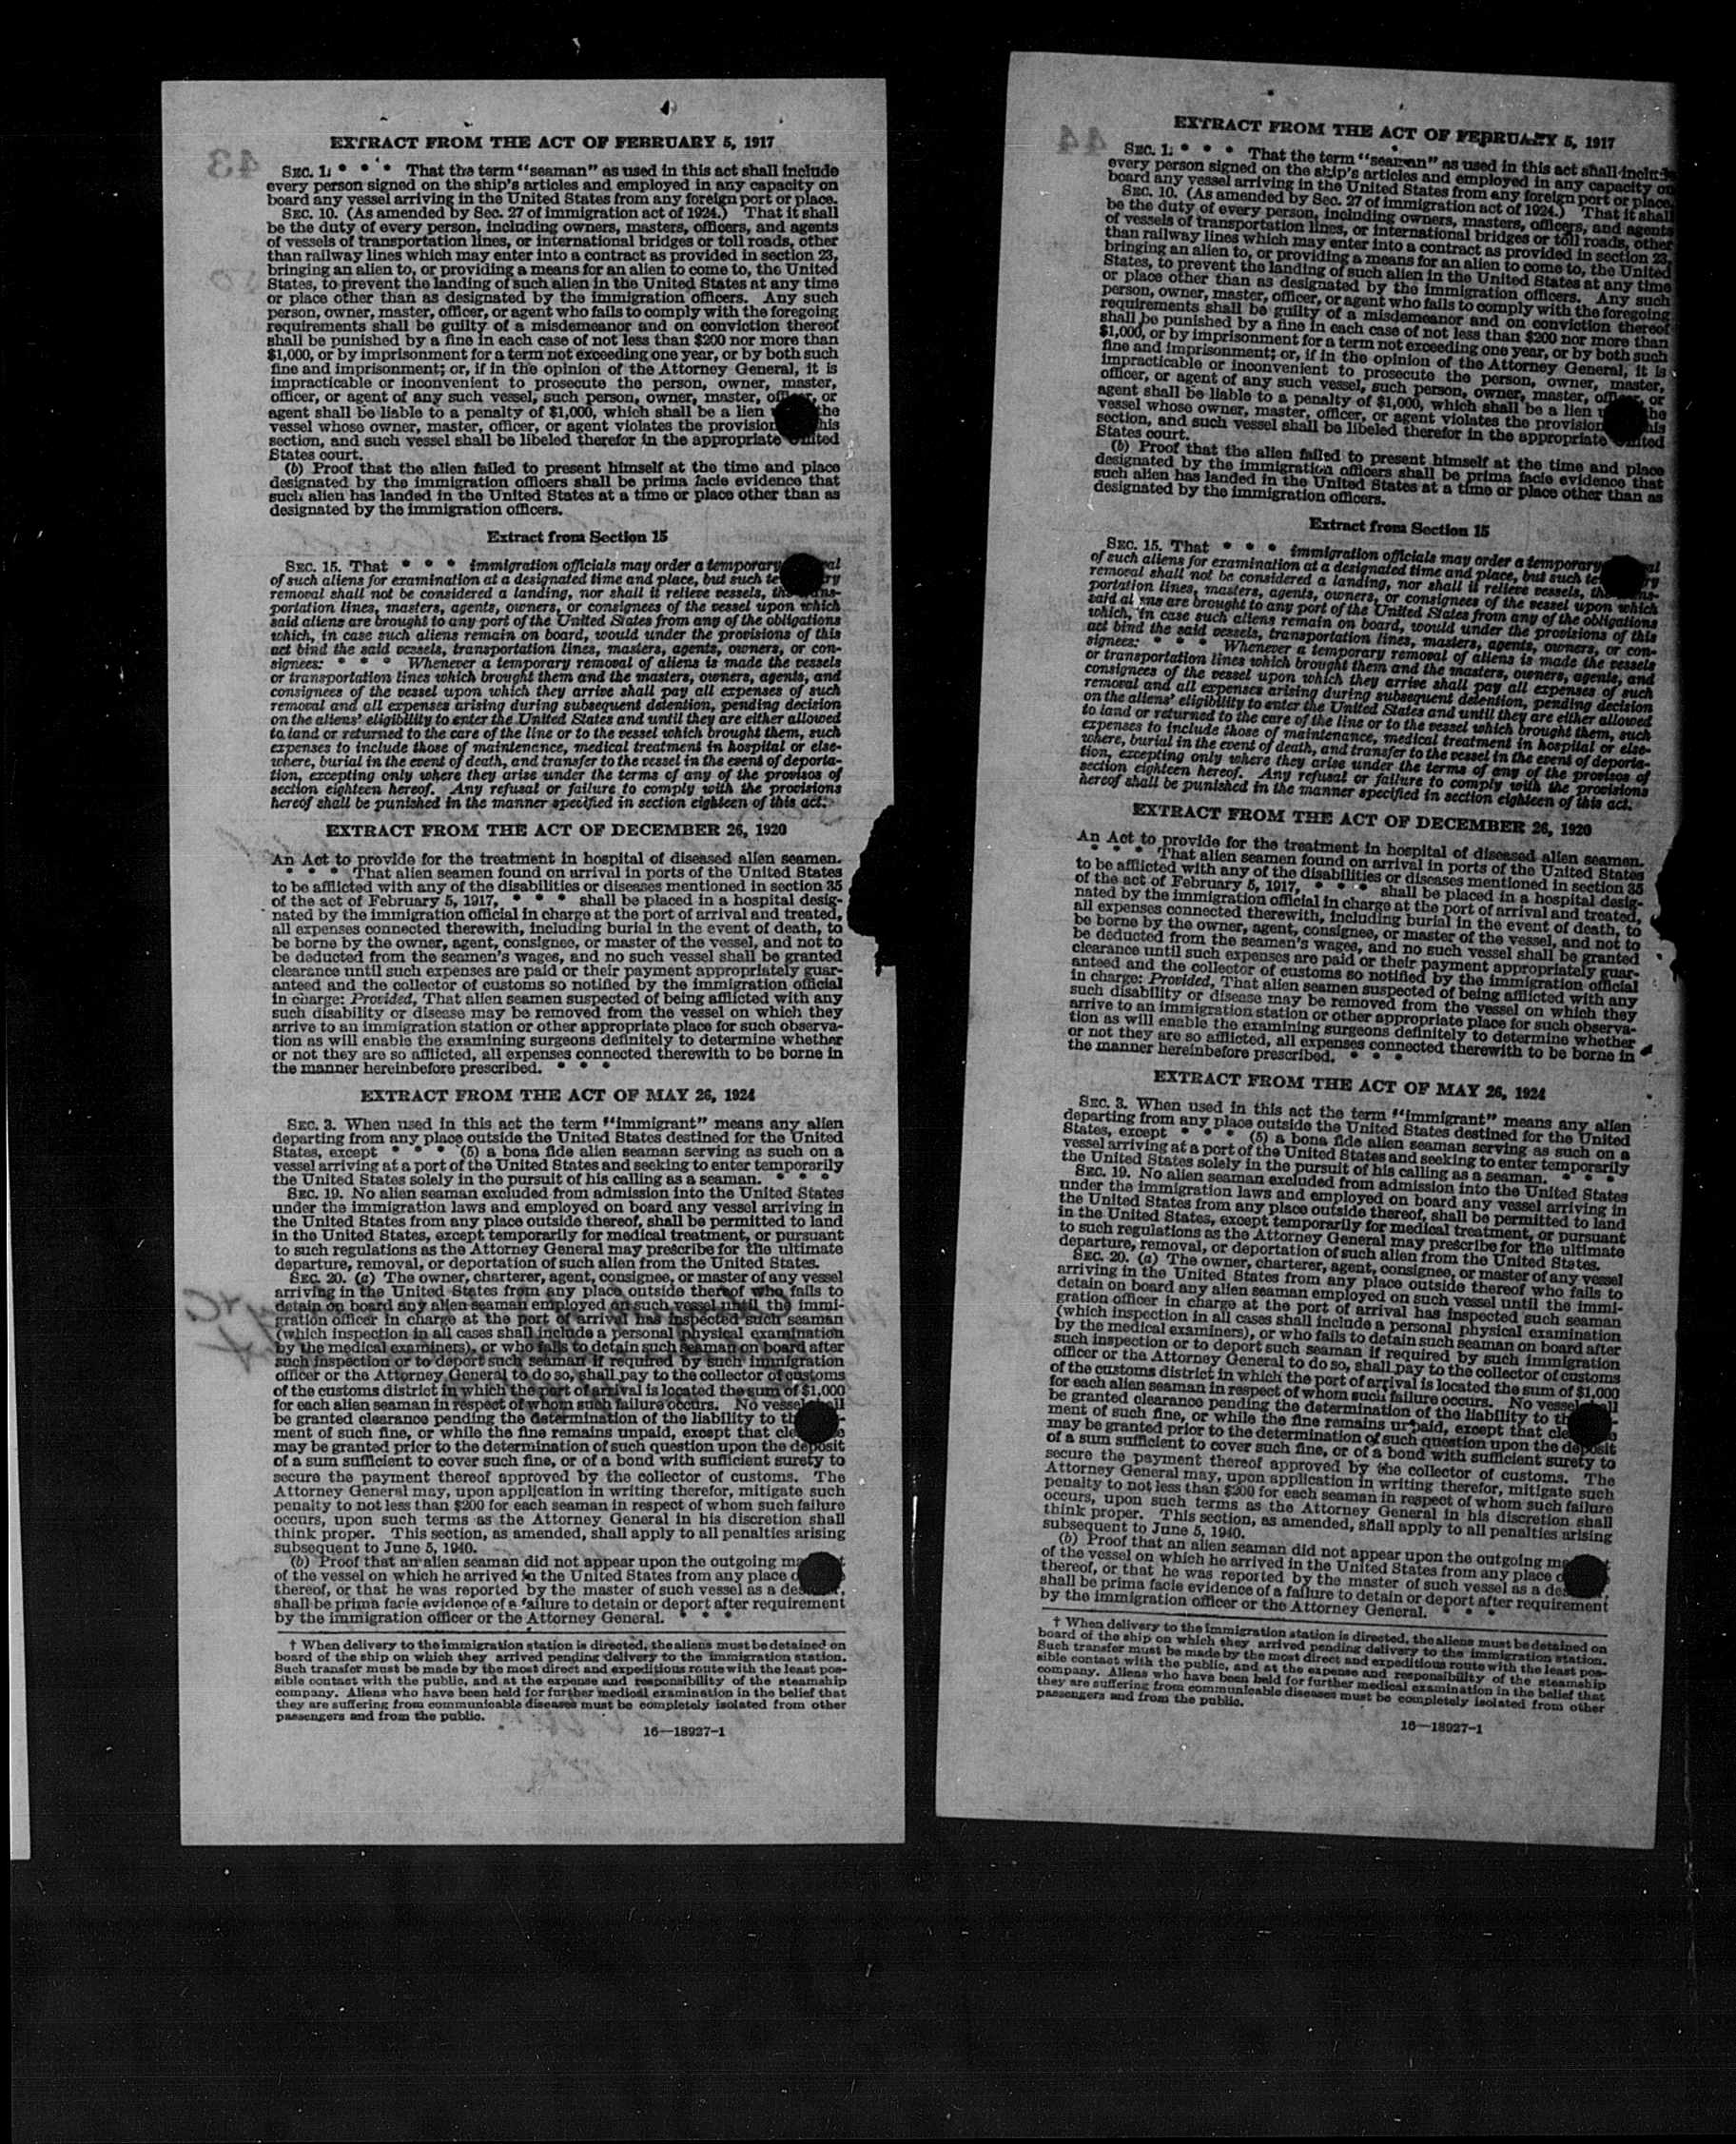 EXTRACT FROM THE ACT OF FEBRUARY 5, 1917
43
SEC. 1. * * * That the term "seaman" as used in this act shall include
every person signed on the ship's articles and employed in any capacity on
board any vessel arriving in the United States from any foreign port or place.
SEC. 10. (As amended by Sec. 27 of immigration act of 1924.) That it shall
be the duty of every person, including owners, masters, officers, and agents
of vessels of transportation lines, or international bridges or toll roads, other
than railway lines which may enter into a contract as provided in section 23,
bringing an alien to, or providing a means for an alien to come to, the United
States, to prevent the landing of such alien in the United States at any time
or place other than as designated by the immigration officers. Any such
person, owner, master, officer, or agent who fails to comply with the foregoing
requirements shall be guilty of a misdemeanor and on conviction thereof
shall be punished by a fine in each case of not less than $200 nor more than
$1,000, or by imprisonment for a term not exceeding one year, or by both such
fine and imprisonment; or, if in the opinion of the Attorney General, it is
impracticable or inconvenient to prosecute the person, owner, master,
officer, or agent of any such vessel, such person, owner, master, officer, or
agent shall be liable to a penalty of $1,000, which shall be a lien the
vessel whose owner, master, officer, or agent violates the provision this
section, and such vessel shall be libeled therefor in the appropriate United
States court.
(b) Proof that the alien failed to present himself at the time and place
designated by the immigration officers shall be prima facie evidence that
such alien has landed in the United States at a time or place other than as
designated by the immigration officers.
Extract from Section 15
SEC. 15. That * * * immigration officials may order a temporary
of such aliens for examination at a designated time and place, but such
removal shall not be considered a landing, nor shall it relieve vessels, the trans-
portation lines, masters, agents, owners, or consignees of the vessel upon which
said aliens are brought to any port of the United States from any of the obligations
which, in case such aliens remain on board, would under the provisions of this
act bind the said vessels, transportation lines, masters, agents, owners, or con-
signees: * * * Whenever a temporary removal of aliens is made the vessels
or transportation lines which brought them and the masters, owners, agents, and
consignees of the vessel upon which they arrive shall pay all expenses of such
removal and all expenses arising during subsequent detention, pending decision
on the aliens' eligibility to enter the United States and until they are either allowed
to land or returned to the care of the line or to the vessel which brought them, such
expenses to include those of maintenance, medical treatment in hospital or else-
where, burial in the event of death, and transfer to the vessel in the event of deporta-
tion, excepting only where they arise under the terms of any of the provisos of
section eighteen hereof. Any refusal or failure to comply with the provisions
hereof shall be punished in the manner specified in section eighteen of this act.
EXTRACT FROM THE ACT OF DECEMBER 26, 1920
An Act to provide for the treatment in hospital of diseased alien seamen.
* * * That alien seamen found on arrival in ports of the United States
to be afflicted with any of the disabilities or diseases mentioned in section 35
of the act of February 5, 1917, * * * shall be placed in a hospital desig-
nated by the immigration official in charge at the port of arrival and treated,
all expenses connected therewith, including burial in the event of death, to
be borne by the owner, agent, consignee, or master of the vessel, and not to
be deducted from the seamen's wages, and no such vessel shall be granted
clearance until such expenses are paid or their payment appropriately guar-
anteed and the collector of customs so notified by the immigration official
in charge: Provided, That alien seamen suspected of being afflicted with any
such disability or disease may be removed from the vessel on which they
arrive to an immigration station or other appropriate place for such observa-
tion as will enable the examining surgeons definitely to determine whether
or not they are so afflicted, all expenses connected therewith to be borne in
the manner hereinbefore prescribed. * * *
EXTRACT FROM THE ACT OF MAY 26, 1924
SEC. 3. When used in this act the term "immigrant" means any alien
departing from any place outside the United States destined for the United
States, except * * * (5) a bona fide alien seaman serving as such on a
vessel arriving at a port of the United States and seeking to enter temporarily
the United States solely in the pursuit of his calling as a seaman. * * *
SEC. 19. No alien seaman excluded from admission into the United States
under the immigration laws and employed on board any vessel arriving in
the United States from any place outside thereof, shall be permitted to land
in the United States, except temporarily for medical treatment, or pursuant
to such regulations as the Attorney General may prescribe for the ultimate
departure, removal, or deportation of such alien from the United States.
SEC. 20. (a) The owner, charterer, agent, consignee, or master of any vessel
arriving in the United States from any place outside thereof who fails to
detain on board any alien seaman employed on such vessel until the immi-
gration officer in charge at the port of arrival has inspected such seaman
(which inspection in all cases shall include a personal physical examination
by the medical examiners), or who fails to detain such seaman on board after
such inspection or to deport such seaman if required by such immigration
officer or the Attorney General to do so, shall pay to the collector of customs
of the customs district in which the port of arrival is located the sum of $1,000
for each alien seaman in respect of whom such failure occurs. No vessel shall
be granted clearance pending the determination of the liability to
ment of such fine, or while the fine remains unpaid, except that
may be granted prior to the determination of such question upon the deposit
of a sum sufficient to cover such fine, or of a bond with sufficient surety to
secure the payment thereof approved by the collector of customs. The
Attorney General may, upon application in writing therefor, mitigate such
penalty to not less than $200 for each seaman in respect of whom such failure
occurs, upon such terms as the Attorney General in his discretion shall
think proper. This section, as amended, shall apply to all penalties arising
subsequent to June 5, 1940.
(b) Proof that an alien seaman did not appear upon the outgoing
of the vessel on which he arrived in the United States from any place
thereof, or that he was reported by the master of such vessel as a
shall be prima facie evidence of a failure to detain or deport after requirement
by the immigration officer or the Attorney General. * * *
† When delivery to the immigration station is directed, the aliens must be detained on
board of the ship on which they arrived pending delivery to the immigration station.
Such transfer must be made by the most direct and expeditious route with the least pos-
sible contact with the public, and at the expense and responsibility of the steamship
company. Aliens who have been held for further medical examination in the belief that
they are suffering from communicable diseases must be completely isolated from other
passengers and from the public.
16—18927-1
EXTRACT FROM THE ACT OF FEBRUARY 5, 1917
44
SEC. 1. * * * That the term "seaman" as used in this act shall include
every person signed on the ship's articles and employed in any capacity on
board any vessel arriving in the United States from any foreign port or place.
SEC. 10. (As amended by Sec. 27 of immigration act of 1924.) That it shall
be the duty of every person, including owners, masters, officers, and agents
of vessels of transportation lines, or international bridges or toll roads, other
than railway lines which may enter into a contract as provided in section 23,
bringing an alien to, or providing a means for an alien to come to, the United
States, to prevent the landing of such alien in the United States at any time
or place other than as designated by the immigration officers. Any such
person, owner, master, officer, or agent who fails to comply with the foregoing
requirements shall be guilty of a misdemeanor and on conviction thereof
shall be punished by a fine in each case of not less than $200 nor more than
$1,000, or by imprisonment for a term not exceeding one year, or by both such
fine and imprisonment; or, if in the opinion of the Attorney General, it is
impracticable or inconvenient to prosecute the person, owner, master,
officer, or agent of any such vessel, such person, owner, master, officer, or
agent shall be liable to a penalty of $1,000, which shall be a lien the
vessel whose owner, master, officer, or agent violates the provision this
section, and such vessel shall be libeled therefor in the appropriate United
States court.
(b) Proof that the alien failed to present himself at the time and place
designated by the immigration officers shall be prima facie evidence that
such alien has landed in the United States at a time or place other than as
designated by the immigration officers.
Extract from Section 15
SEC. 15. That * * * immigration officials may order a temporary
of such aliens for examination at a designated time and place, but such
removal shall not be considered a landing, nor shall it relieve vessels, the trans-
portation lines, masters, agents, owners, or consignees of the vessel upon which
said aliens are brought to any port of the United States from any of the obligations
which, in case such aliens remain on board, would under the provisions of this
act bind the said vessels, transportation lines, masters, agents, owners, or con-
signees: * * * Whenever a temporary removal of aliens is made the vessels
or transportation lines which brought them and the masters, owners, agents, and
consignees of the vessel upon which they arrive shall pay all expenses of such
removal and all expenses arising during subsequent detention, pending decision
on the aliens' eligibility to enter the United States and until they are either allowed
to land or returned to the care of the line or to the vessel which brought them, such
expenses to include those of maintenance, medical treatment in hospital or else-
where, burial in the event of death, and transfer to the vessel in the event of deporta-
tion, excepting only where they arise under the terms of any of the provisos of
section eighteen hereof. Any refusal or failure to comply with the provisions
hereof shall be punished in the manner specified in section eighteen of this act.
EXTRACT FROM THE ACT OF DECEMBER 26, 1920
An Act to provide for the treatment in hospital of diseased alien seamen.
* * * That alien seamen found on arrival in ports of the United States
to be afflicted with any of the disabilities or diseases mentioned in section 35
of the act of February 5, 1917, * * * shall be placed in a hospital desig-
nated by the immigration official in charge at the port of arrival and treated,
all expenses connected therewith, including burial in the event of death, to
be borne by the owner, agent, consignee, or master of the vessel, and not to
be deducted from the seamen's wages, and no such vessel shall be granted
clearance until such expenses are paid or their payment appropriately guar-
anteed and the collector of customs so notified by the immigration official
in charge: Provided, That alien seamen suspected of being afflicted with any
such disability or disease may be removed from the vessel on which they
arrive to an immigration station or other appropriate place for such observa-
tion as will enable the examining surgeons definitely to determine whether
or not they are so afflicted, all expenses connected therewith to be borne in
the manner hereinbefore prescribed. * * *
EXTRACT FROM THE ACT OF MAY 26, 1924
SEC. 3. When used in this act the term "immigrant" means any alien
departing from any place outside the United States destined for the United
States, except * * * (5) a bona fide alien seaman serving as such on a
vessel arriving at a port of the United States and seeking to enter temporarily
the United States solely in the pursuit of his calling as a seaman. * * *
SEC. 19. No alien seaman excluded from admission into the United States
under the immigration laws and employed on board any vessel arriving in
the United States from any place outside thereof, shall be permitted to land
in the United States, except temporarily for medical treatment, or pursuant
to such regulations as the Attorney General may prescribe for the ultimate
departure, removal, or deportation of such alien from the United States.
SEC. 20. (a) The owner, charterer, agent, consignee, or master of any vessel
arriving in the United States from any place outside thereof who fails to
detain on board any alien seaman employed on such vessel until the immi-
gration officer in charge at the port of arrival has inspected such seaman
(which inspection in all cases shall include a personal physical examination
by the medical examiners), or who fails to detain such seaman on board after
such inspection or to deport such seaman if required by such immigration
officer or the Attorney General to do so, shall pay to the collector of customs
of the customs district in which the port of arrival is located the sum of $1,000
for each alien seaman in respect of whom such failure occurs. No vessel shall
be granted clearance pending the determination of the liability to
ment of such fine, or while the fine remains unpaid, except that
may be granted prior to the determination of such question upon the deposit
of a sum sufficient to cover such fine, or of a bond with sufficient surety to
secure the payment thereof approved by the collector of customs. The
Attorney General may, upon application in writing therefor, mitigate such
penalty to not less than $200 for each seaman in respect of whom such failure
occurs, upon such terms as the Attorney General in his discretion shall
think proper. This section, as amended, shall apply to all penalties arising
subsequent to June 5, 1940.
(b) Proof that an alien seaman did not appear upon the outgoing
of the vessel on which he arrived in the United States from any place
thereof, or that he was reported by the master of such vessel as a
shall be prima facie evidence of a failure to detain or deport after requirement
by the immigration officer or the Attorney General. * * *
† When delivery to the immigration station is directed, the aliens must be detained on
board of the ship on which they arrived pending delivery to the immigration station.
Such transfer must be made by the most direct and expeditious route with the least pos-
sible contact with the public, and at the expense and responsibility of the steamship
company. Aliens who have been held for further medical examination in the belief that
they are suffering from communicable diseases must be completely isolated from other
passengers and from the public.
16—18927-1